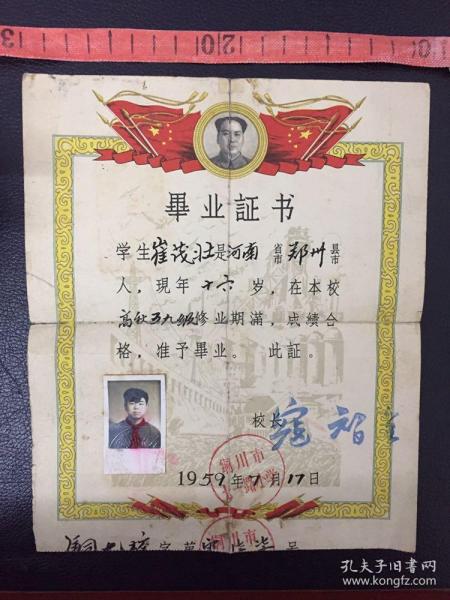 13 10 12
畢业証书
学生崔茂壮是河南省市郑州县市
人，现年十六岁，在本校
高秋五九級修业期滿，成績合
格，准予畢业。此証。
校长 寇
铜川市
1959年7月17日
铜川市
字第 号
孔夫子旧书网
www.kongfz.com